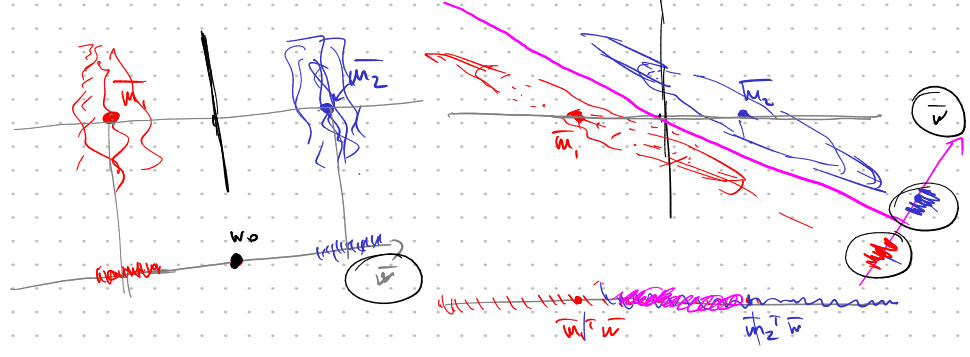 m̅₁
m̅₂
w₀
w̅
m̅₁
m̅₂
w̅
m̅₁ᵀ w̅
m̅₂ᵀ w̅